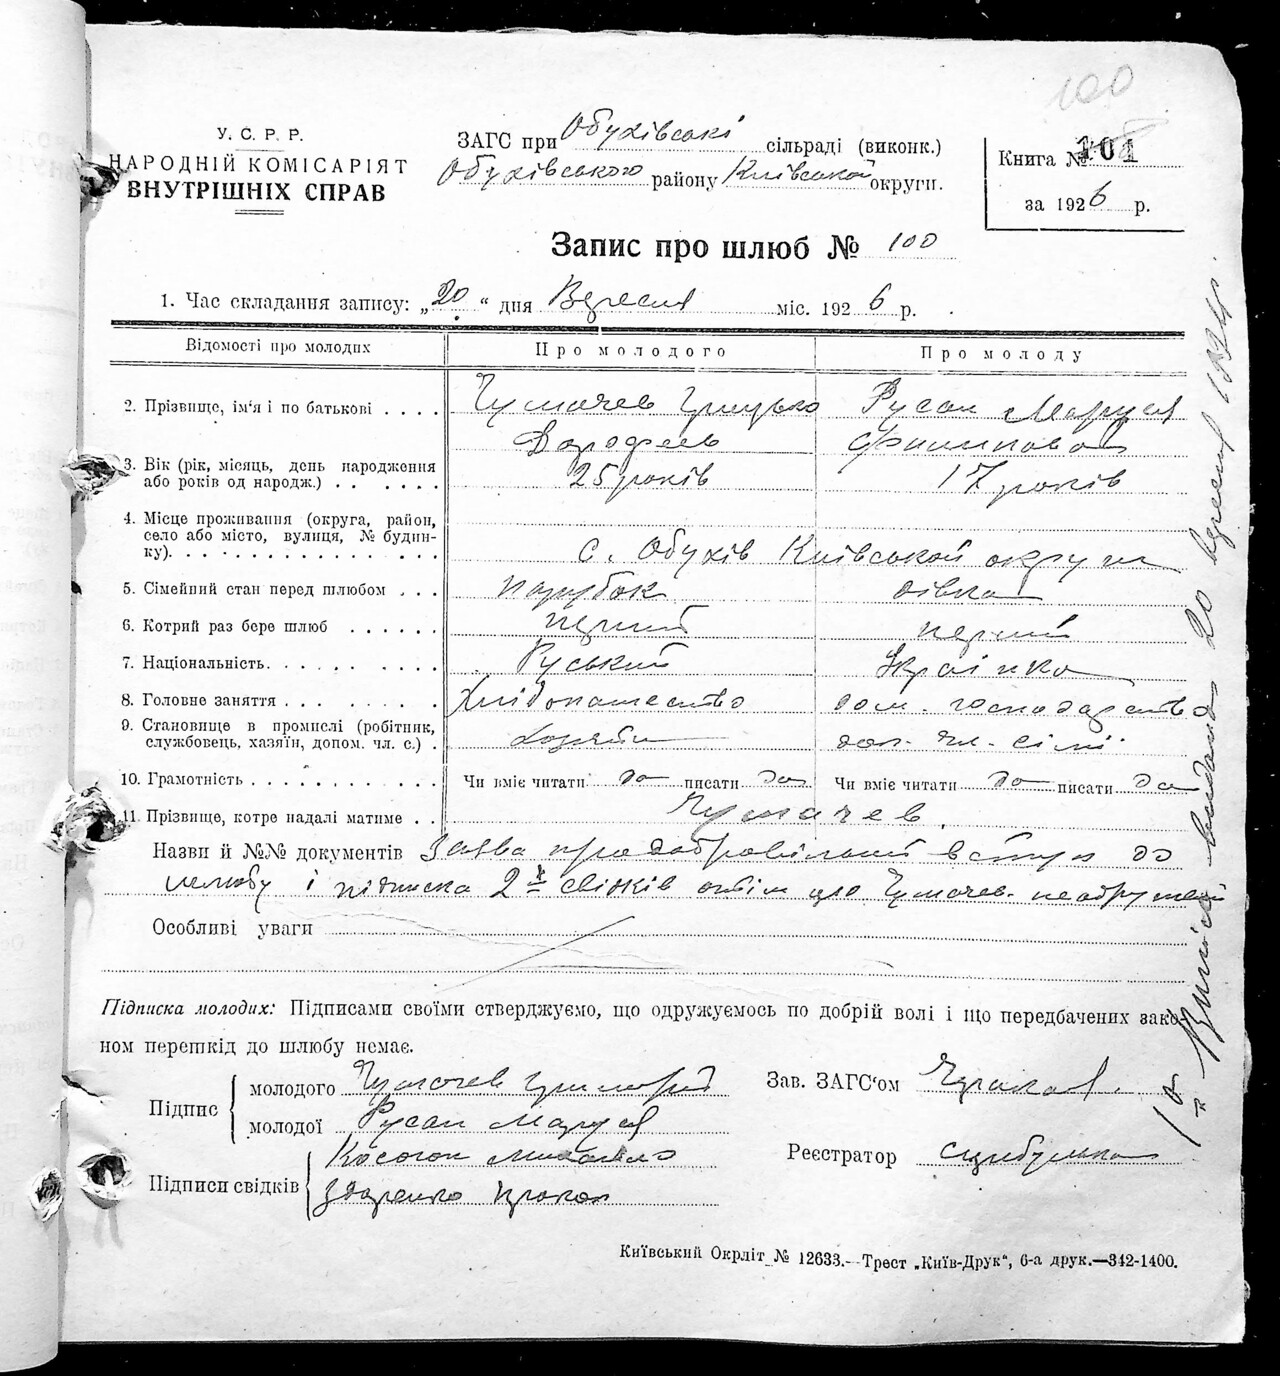 100
У. С. Р. Р.
НАРОДНІЙ КОМІСАРІЯТ
ВНУТРІШНІХ СПРАВ
ЗАГС при Обухівські сільраді (виконк.)
Обухівського району Київської округи.
Книга № 101
за 1926 р.
Запис про шлюб № 100
1. Час складання запису: „20“ дня Вересня міс. 1926 р.
Відомості про молодих
Про молодого
Про молоду
2. Прізвище, ім'я і по батькові . . . .
Чумачев Грицько
Дорофеев
Русан Маруся
Филипова
3. Вік (рік, місяць, день народження
або років од народж.) . . . . . .
25 років
17 років
4. Місце проживання (округа, район,
село або місто, вулиця, № будин-
ку). . . . . . . . . . . . . . .
с. Обухів Київської округи
5. Сімейний стан перед шлюбом . . .
парубок
дівка
6. Котрий раз бере шлюб . . . . . .
перший
перший
7. Національність. . . . . . . . . .
Руський
Українка
8. Головне заняття . . . . . . . . .
Хлібопашество
дом. господарство
9. Становище в промислі (робітник,
службовець, хазяїн, допом. чл. с.) .
хозяїн
доп. чл. сімї
10. Грамотність . . . . . . . . . . .
Чи вміє читати да писати да
Чи вміє читати да писати да
11. Прізвище, котре надалі матиме . .
Чумачев.
Назви й №№ документів Заява про добровільний вступ до
шлюбу і підписка 2х свідків о тім що Чумачев неодружен
Особливі уваги
Підписка молодих: Підписами своїми стверджуємо, що одружуємось по добрій волі і що передбачених зако-
ном перешкід до шлюбу немає.
Підпис
молодого Чумачев Григорий
молодої Русан Маруся
Підписи свідків
Косогон Михайло
Зав. ЗАГС'ом
Реєстратор Сцибулька
Виписъ видана 20 вересня 192
Київський Окрліт № 12633.—Трест „Київ-Друк“, 6-а друк.—342-1400.